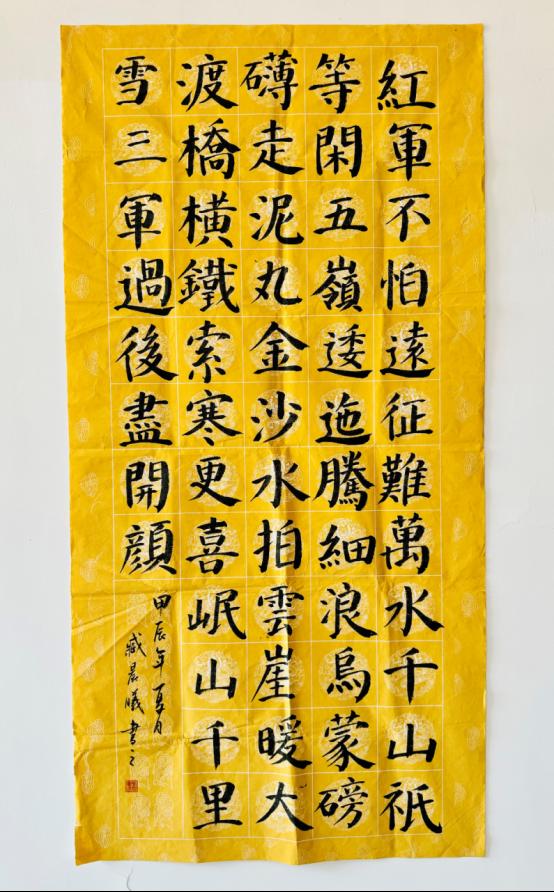 紅軍不怕遠征難萬水千山祇
等閑五嶺逶迤騰細浪烏蒙磅
礴走泥丸金沙水拍雲崖暖大
渡橋橫鐵索寒更喜岷山千里
雪三軍過後盡開顏
甲辰年夏月
臧晨曦書之